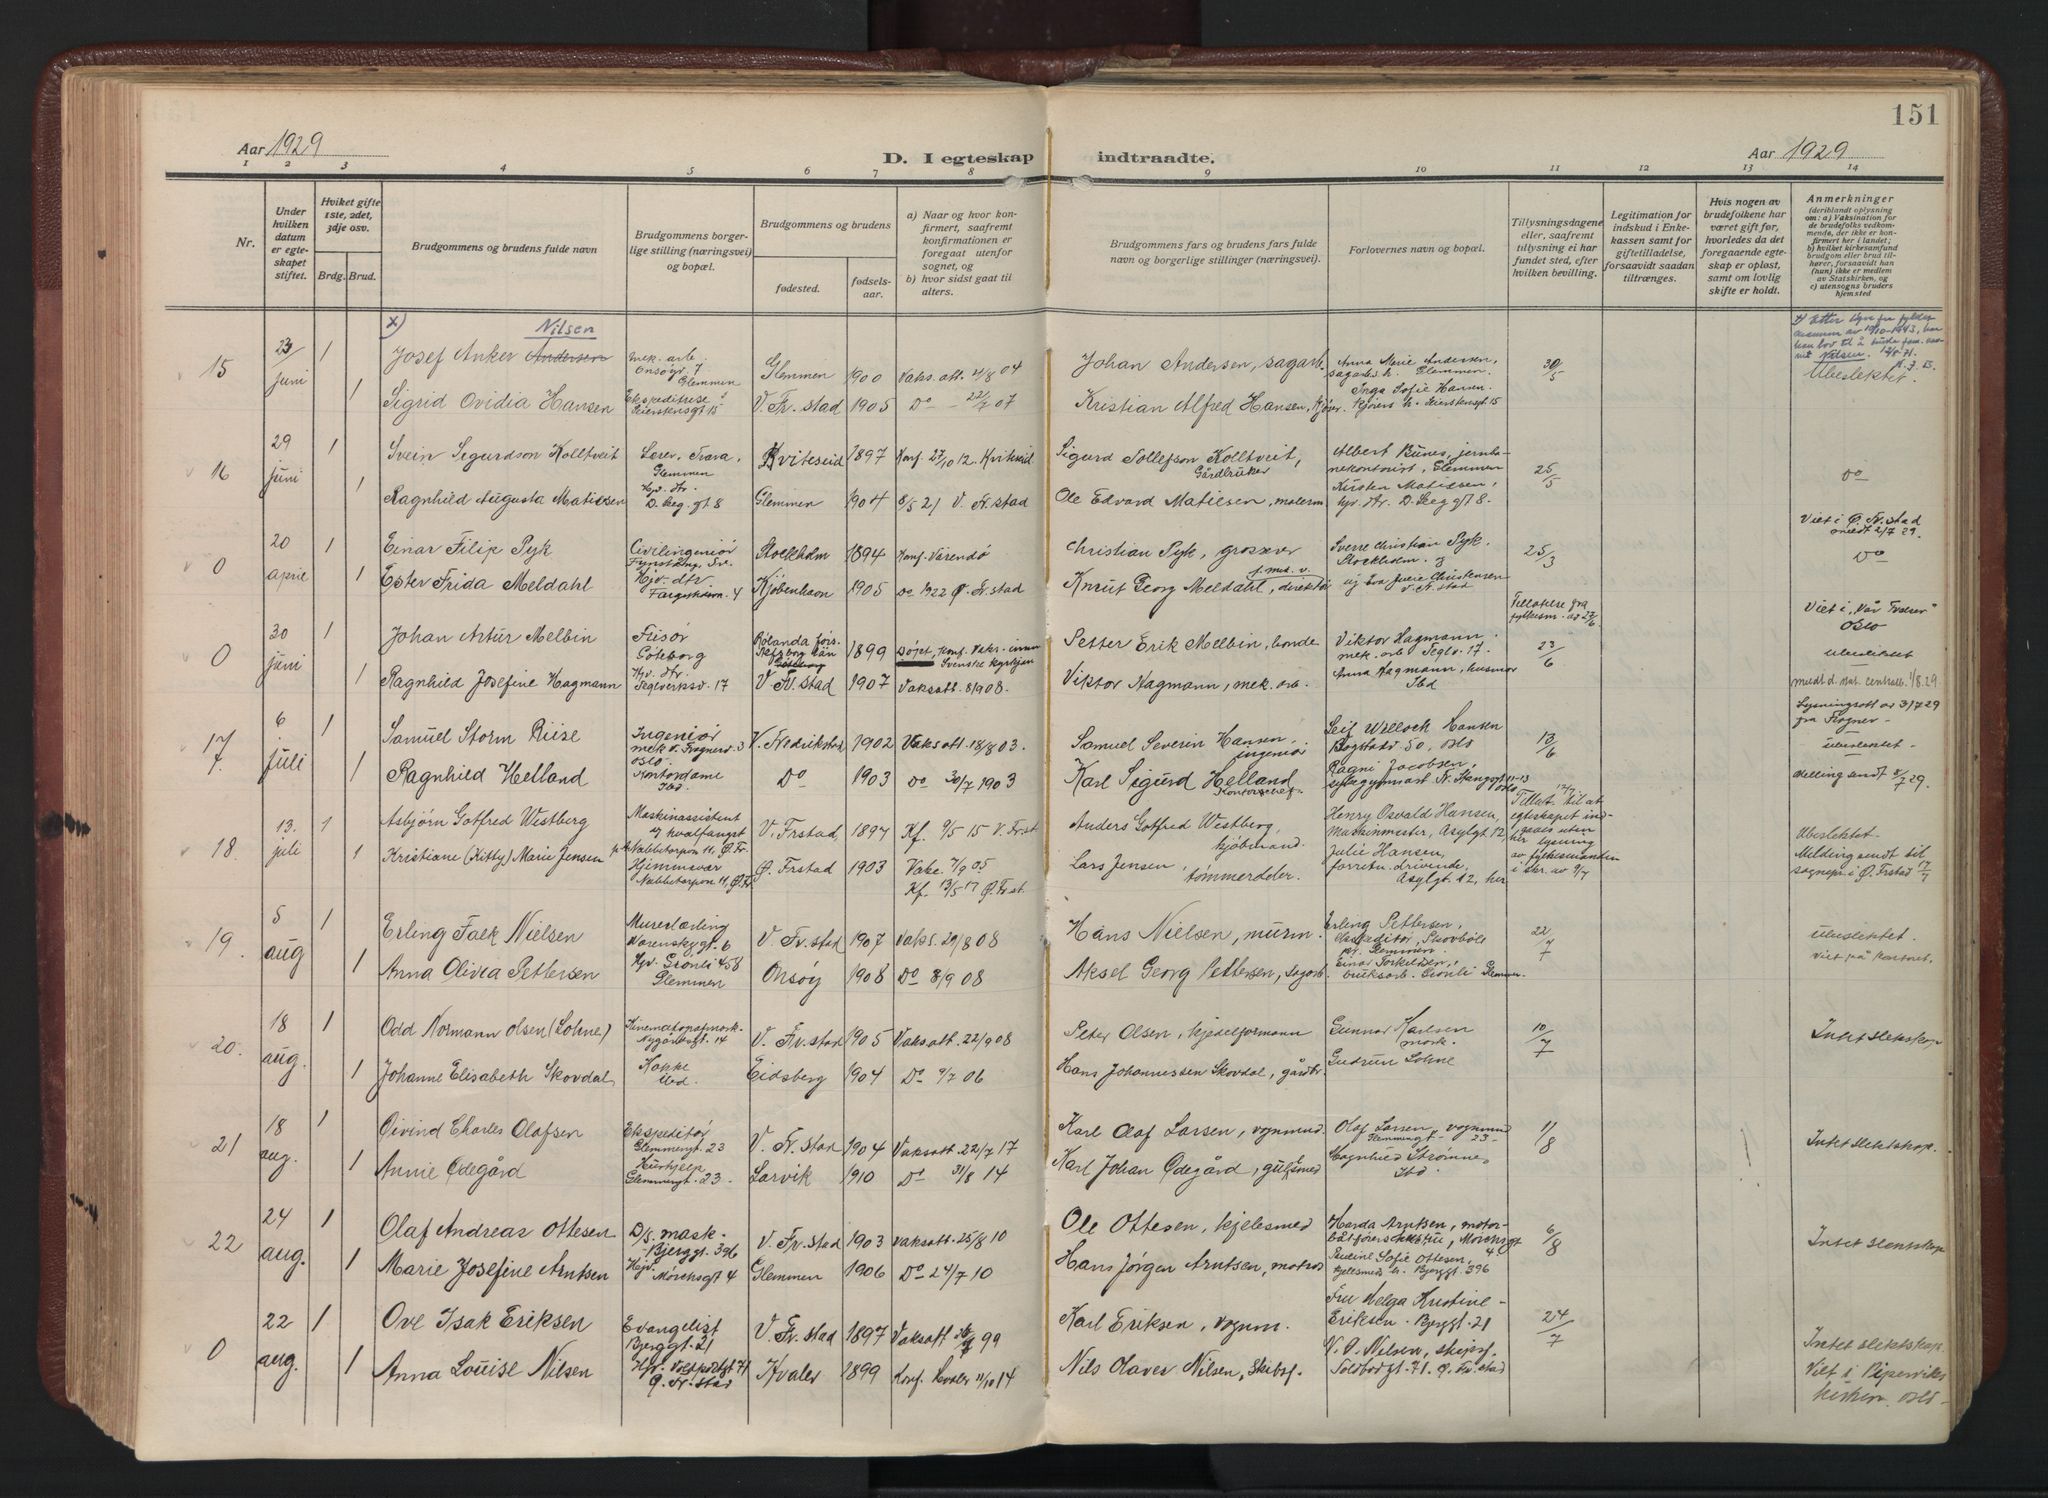 151
Aar 1929
D. I egteskap indtraadte.
Aar 1929
1 2 3 4 5 6 7 8 9 10 11 12 13 14
Nr.
Under hvilken datum er egteskapet stiftet.
Hviket gifte 1ste, 2det, 3dje osv.
Brdg. Brud.
Brudgommens og brudens fulde navn
Brudgommens borgerlige stilling (næringsvei) og bopæl.
Brudgommens og brudens
fødested.
fødselsaar.
a) Naar og hvor konfirmert, saafremt konfirmationen er foregaat utenfor sognet, og
b) hvor sidst gaat til alters.
Brudgommens fars og brudens fars fulde navn og borgerlige stillinger (næringsvei).
Forlovernes navn og bopæl.
Tillysningsdagene eller, saafremt tillysning ei har fundet sted, efter hvilken bevilling.
Legitimation for indskud i Enkekassen samt for giftetilladelse, forsaavidt saadan tiltrænges.
Hvis nogen av brudefolkene har været gift før, hvorledes da det foregaaende egteskap er opløst, samt om lovlig skifte er holdt.
Anmerkninger
(deriblandt oplysning om: a) Vaksination for de brudefolks vedkommende, der ikke er konfirmert her i landet; b) hvilket kirkesamfund brudgom eller brud tilhører, forsaavidt han (hun) ikke er medlem av Statskirken, og c) utensogns bruders hjemsted
x) Nilsen
15 23/juni 1 Josef Anker Andersen mek. arb. Onsøgt. 7 Glemmen Glemmen 1900 Vaks. att. 4/8 04 Johan Andersen, sagarb. Anna Marie Andersen, sagarb. h. Glemmen 30/5 Ubeslektet.
1 Sigrid Ovidia Hansen Ekspeditrise V. Fr.stad 1905 Do 22/7 07 Kristian Alfred Hansen, kjører Inga Sofie Hansen. kjørers h.
16 29 juni 1 Svein Sigurdson Kolltveit Lærer, Trara, Glemmen Kviteseid 1897 Konf. 27/10 12. Kviteseid Sigurd Tollefson Kolltveit, Gårdbruker Albert Bunes, jernbanekontorist, Glemmen 25/5 Do
1 Ragnhild Augusta Matiesen Hjv. dtr. D. Leg. gt 8 Glemmen 1904 8/5 21 V. Fr.stad Ole Edvard Matiesen, malerm Kirsten Matiesen, hjv. dtr. D. Leg gt 8.
0 20 april 1 Einar Filip Pyk Civilingeniør Stockholm 1894 Konf. Värendö Christian Pyk, grosserer Sverre Christian Pyk. Stockholm. 25/3 Viet i Ø. Fr.stad meldt 2/7 29. Do
1 Ester Frida Meldahl Hjv. dtr. Kjøbenhavn 1905 Do 1922 Ø. Fr.stad Knut Georg Meldahl, direktør
0 30 juni 1 Johan Artur Melbin Frisør Göteborg 1899 Petter Erik Melbin, bonde Viktor Hagmann. mek. arb. Teglv. 17. 23/6 Viet i „Vår Frelser" Oslo ubeslektet
1 Ragnhild Josefine Hagmann Hjv. dtr. Teglverksv. 17 V. Fr.stad 1907 Vaks att. 8/9 08. Viktor Hagmann, mek. arb. Anna Hagmann, husmor Ibd meldt d. stat. centralb. 1/8. 29.
17 6 juli 1 Samuel Storm Riise Ingeniør Oslo V. Fredrikstad 1902 Vaks att. 18/8 03. Samuel Severin Hansen, ingeniør Leif Willoch Hansen Bogstadv 50, Oslo 13/6 Lysningsatt av 3/7 29 fra Frogner ubeslektet.
1 Ragnhild Helland Kontordame Ibd. Do 1903 Do 30/7 1903 Karl Sigurd Helland Kontorchef. Ragni Jacobsen, Melding sendt 8/7 29.
18. 13. juli 1 Asbjørn Gotfred Westberg Maskinassistent på hvalfangst V. Frstad, 1897 Kf. 9/5 15 V. Frst Anders Gotfred Westberg, kjøbmand. Henry Osvald Hansen, Maskinmester, Asylgt 12, Tillat. til at egteskapet indgaaes uten her lysning av fylkesmanden i skr. av 9/7 Ubeslektet-
1 Kristiane (Kitty) Marie Jensen Hjemmevær. Nabbetorpon 11, Ø. Fr Ø. Frstad 1903 Vaks. 7/9 05 Kf. 13/5 17 Ø. Frst. Lars Jensen, tømmerdeler. Julie Hansen, forretn. drivende, Asylgt. 12, her Melding sendt til sognepr. i Ø. Frstad 17/7
19. 5 aug 1 Erling Falk Nielsen Murerlærling V. Fr.stad 1907 Vaks. 29/8 08 Hans Nielsen, murm. Erling Pettersen, ekspeditør, Glemmen 22/7 ubeslektet. Viet på kontoret.
1 Anna Olivia Pettersen Hjv. Grønli 458 Glemmen Onsøy 1908 Do 8/9 08 Aksel Georg Pettersen, sagarb. Einar Torkildsen, bruksarb. Grønli Glemmen.
20. 18 aug. 1 Odd Normann Olsen (Lohne) Nygårdsgt. 14 V. Fr.stad 1905 Vaksatt. 22/9 08 Peter Olsen, kjedelformann Gunnar Karlsen 10/7 Intet slektskap.
1 Johanne Elisabeth Skovdal Kokke Ibd Eidsberg 1904 Do 9/7 06 Hans Johannessen Skovdal, gårdbr. Gudrun Lohne
21 18 aug. 1 Øivind Charles Olafsen Ekspeditør Glemmengt. 23 V. Fr.stad 1904 Vaksatt. 22/7 17 Karl Olaf Larsen, vognmand. Olaf Larsen, vognmand Glemmengt 23 1/8 Intet slektskap.
1 Annie Ødegård Hushjelp Glemmengt. 23. Larvik 1910 Do 31/8 14 Karl Johan Ødegård, gullsmed Magnhild Strømnes Ibd.
22 24 aug. 1 Olaf Andreas Ottesen D/s. mask. Bjerggt. 396 V. Fr.stad 1903 Vaksatt. 25/8 10 Ole Ottesen, kjelesmed Harda Arntsen, Mørchsgt 4 6/8 Intet slektskap
1 Marie Josefine Arntsen Hjv. Mørchsgt 4 Glemmen 1906 Do 24/7 10 Hans Jørgen Arntsen, Pauline Sofie Ottesen, kjelesmeds h. Bjerggt. 396
0 22 aug. 1 Ove Isak Eriksen Evangelist Bjerggt. 21 V. Fr.stad 1897 Vaksatt 99 Karl Eriksen, vognm. Fru Helga Kristine Eriksen. Bjerggt. 21 24/7 Intet slektskap.
1 Anna Louise Nilsen Ø. Fr. stad Hvaler 1899 Konf. Hvaler 11/10 14 Nils Olaves Nilsen, Skibsf. V. O. Nilsen, skipsf. Ø. Fr.stad Viet i Pipervikskirken. Oslo